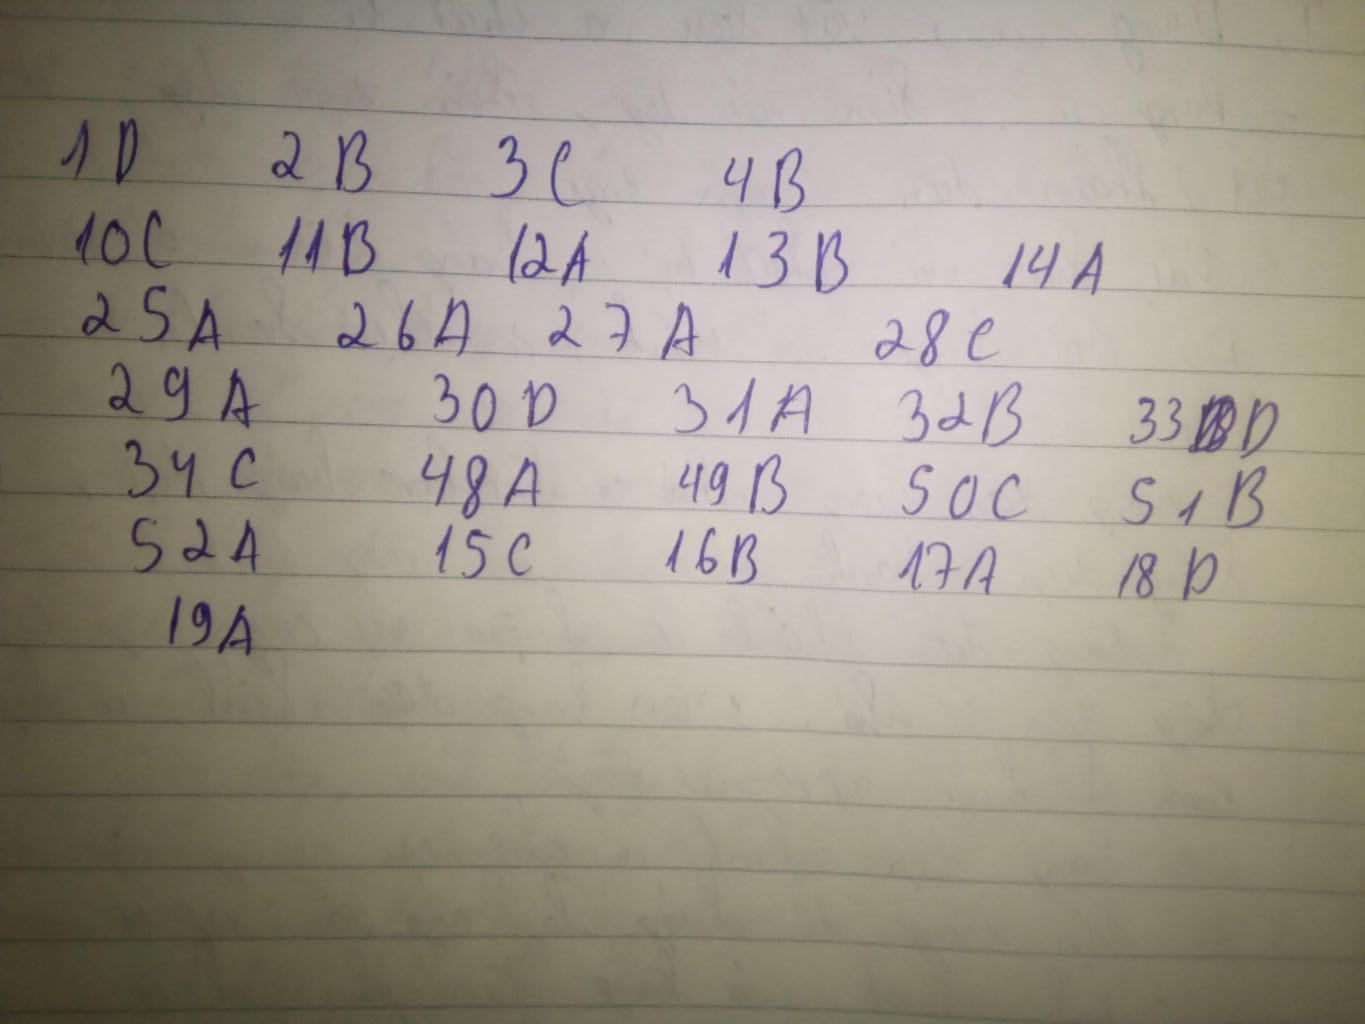 1D 2B 3C 4B
10C 11B 12A 13B 14A
25A 26A 27A 28C
29A 30D 31A 32B 33D
34C 48A 49B 50C 51B
52A 15C 16B 17A 18D
19A